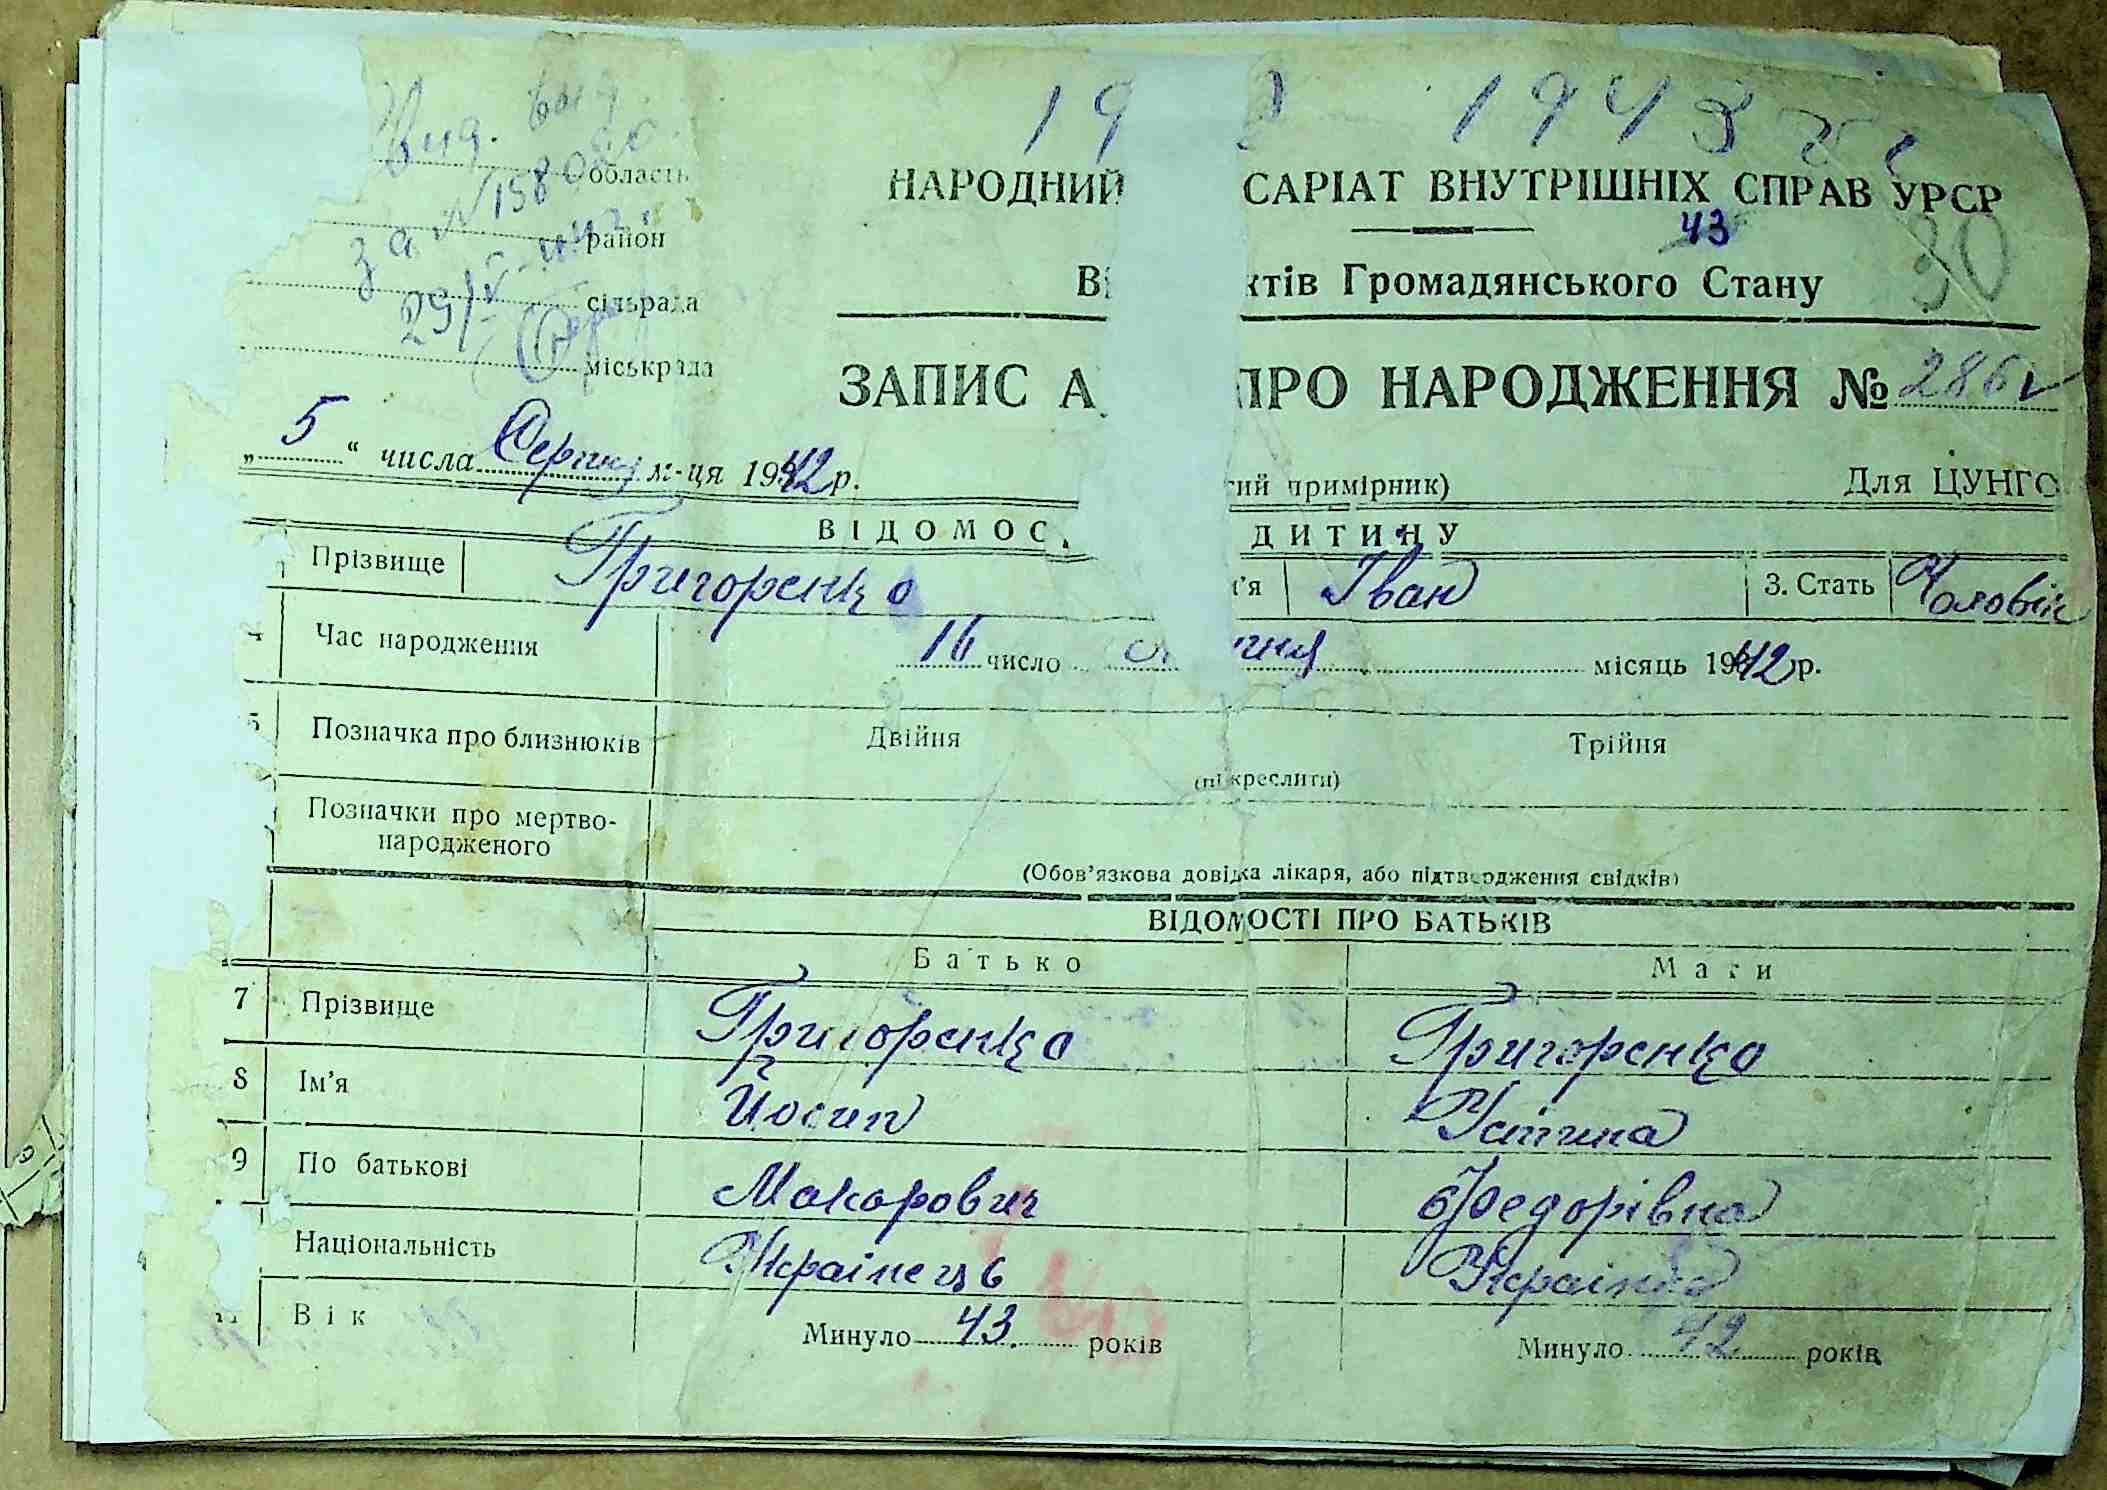 Вид. 
область
за №1580
район
29/V
сільрада
міськрада
19 1943
НАРОДНИЙ САРІАТ ВНУТРІШНІХ СПРАВ УРСР
43
30
Ві ктів Громадянського Стану
ЗАПИС А ПРО НАРОДЖЕННЯ № 286
„5“ числа Серпня м-ця 1942 р.
ий примірник) Для ЦУНГО
ВІДОМОС ДИТИНУ
Прізвище Григоренко м'я Іван 3. Стать Чоловіч
Час народження 16 число чня місяць 1942 р.
5 Позначка про близнюків Двійня Трійня
(підкреслити)
Позначки про мертво-
народженого
(Обов'язкова довідка лікаря, або підтвердження свідків)
ВІДОМОСТІ ПРО БАТЬКІВ
Батько Мати
7 Прізвище Григоренко Григоренко
8 Ім'я Йосип Устина
9 По батькові Макарович Федорівна
Національність Українець Українка
11 Вік Минуло 43 років Минуло 42 років